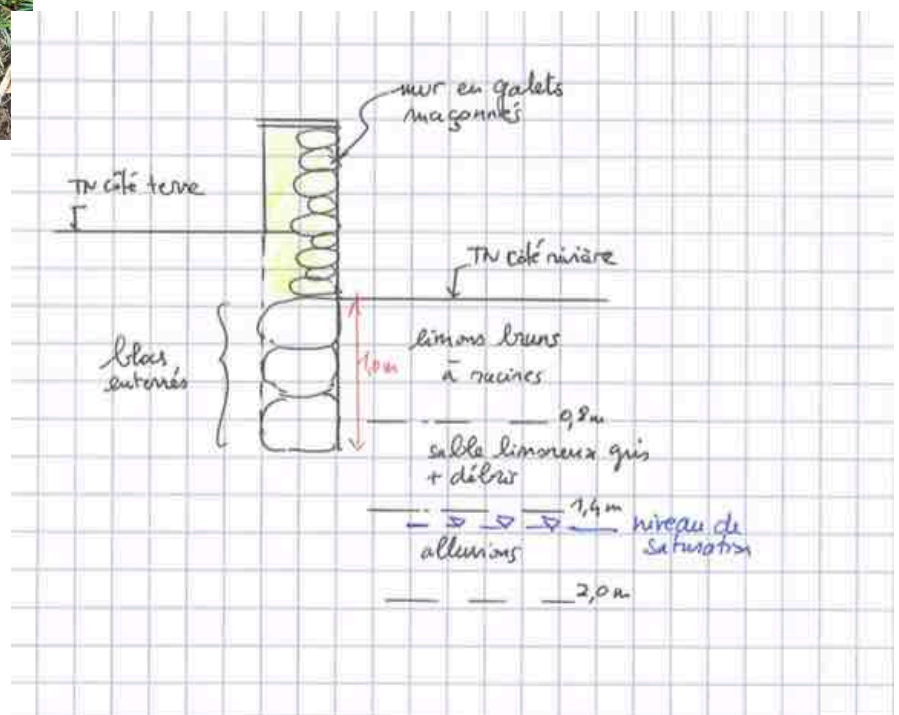 mur en galets
maçonnés
TN côté terre
TN côté rivière
blocs
enterrés
1,0m
limons bruns
à racines
0,8m
sable limoneux gris
+ débris
1,4m
niveau de
saturation
alluvions
2,0m